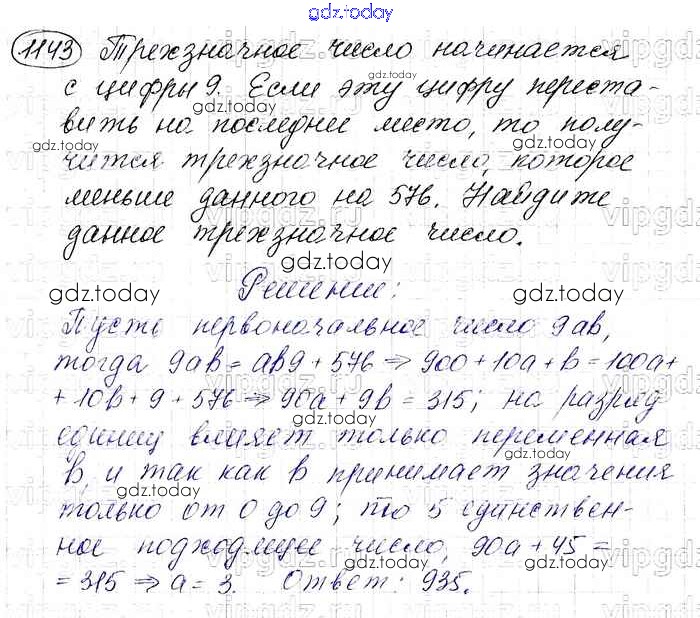 gdz.today
1143 Трехзначное число начинается
с цифры 9. Если эту цифру переста-
вить на последнее место, то полу-
чится трехзначное число, которое
меньше данного на 576. Найдите
данное трехзначное число.
Решение:
Пусть первоначальное число 9ab,
тогда 9ab = ab9 + 576 ⇒ 900 + 10a + b = 100a +
+ 10b + 9 + 576 ⇒ 90a + 9b = 315; на разряд
единиц влияет только переменная
b, и так как b принимает значения
только от 0 до 9; то 5 единствен-
ное подходящее число, 90a + 45 =
= 315 ⇒ a = 3. Ответ: 935.